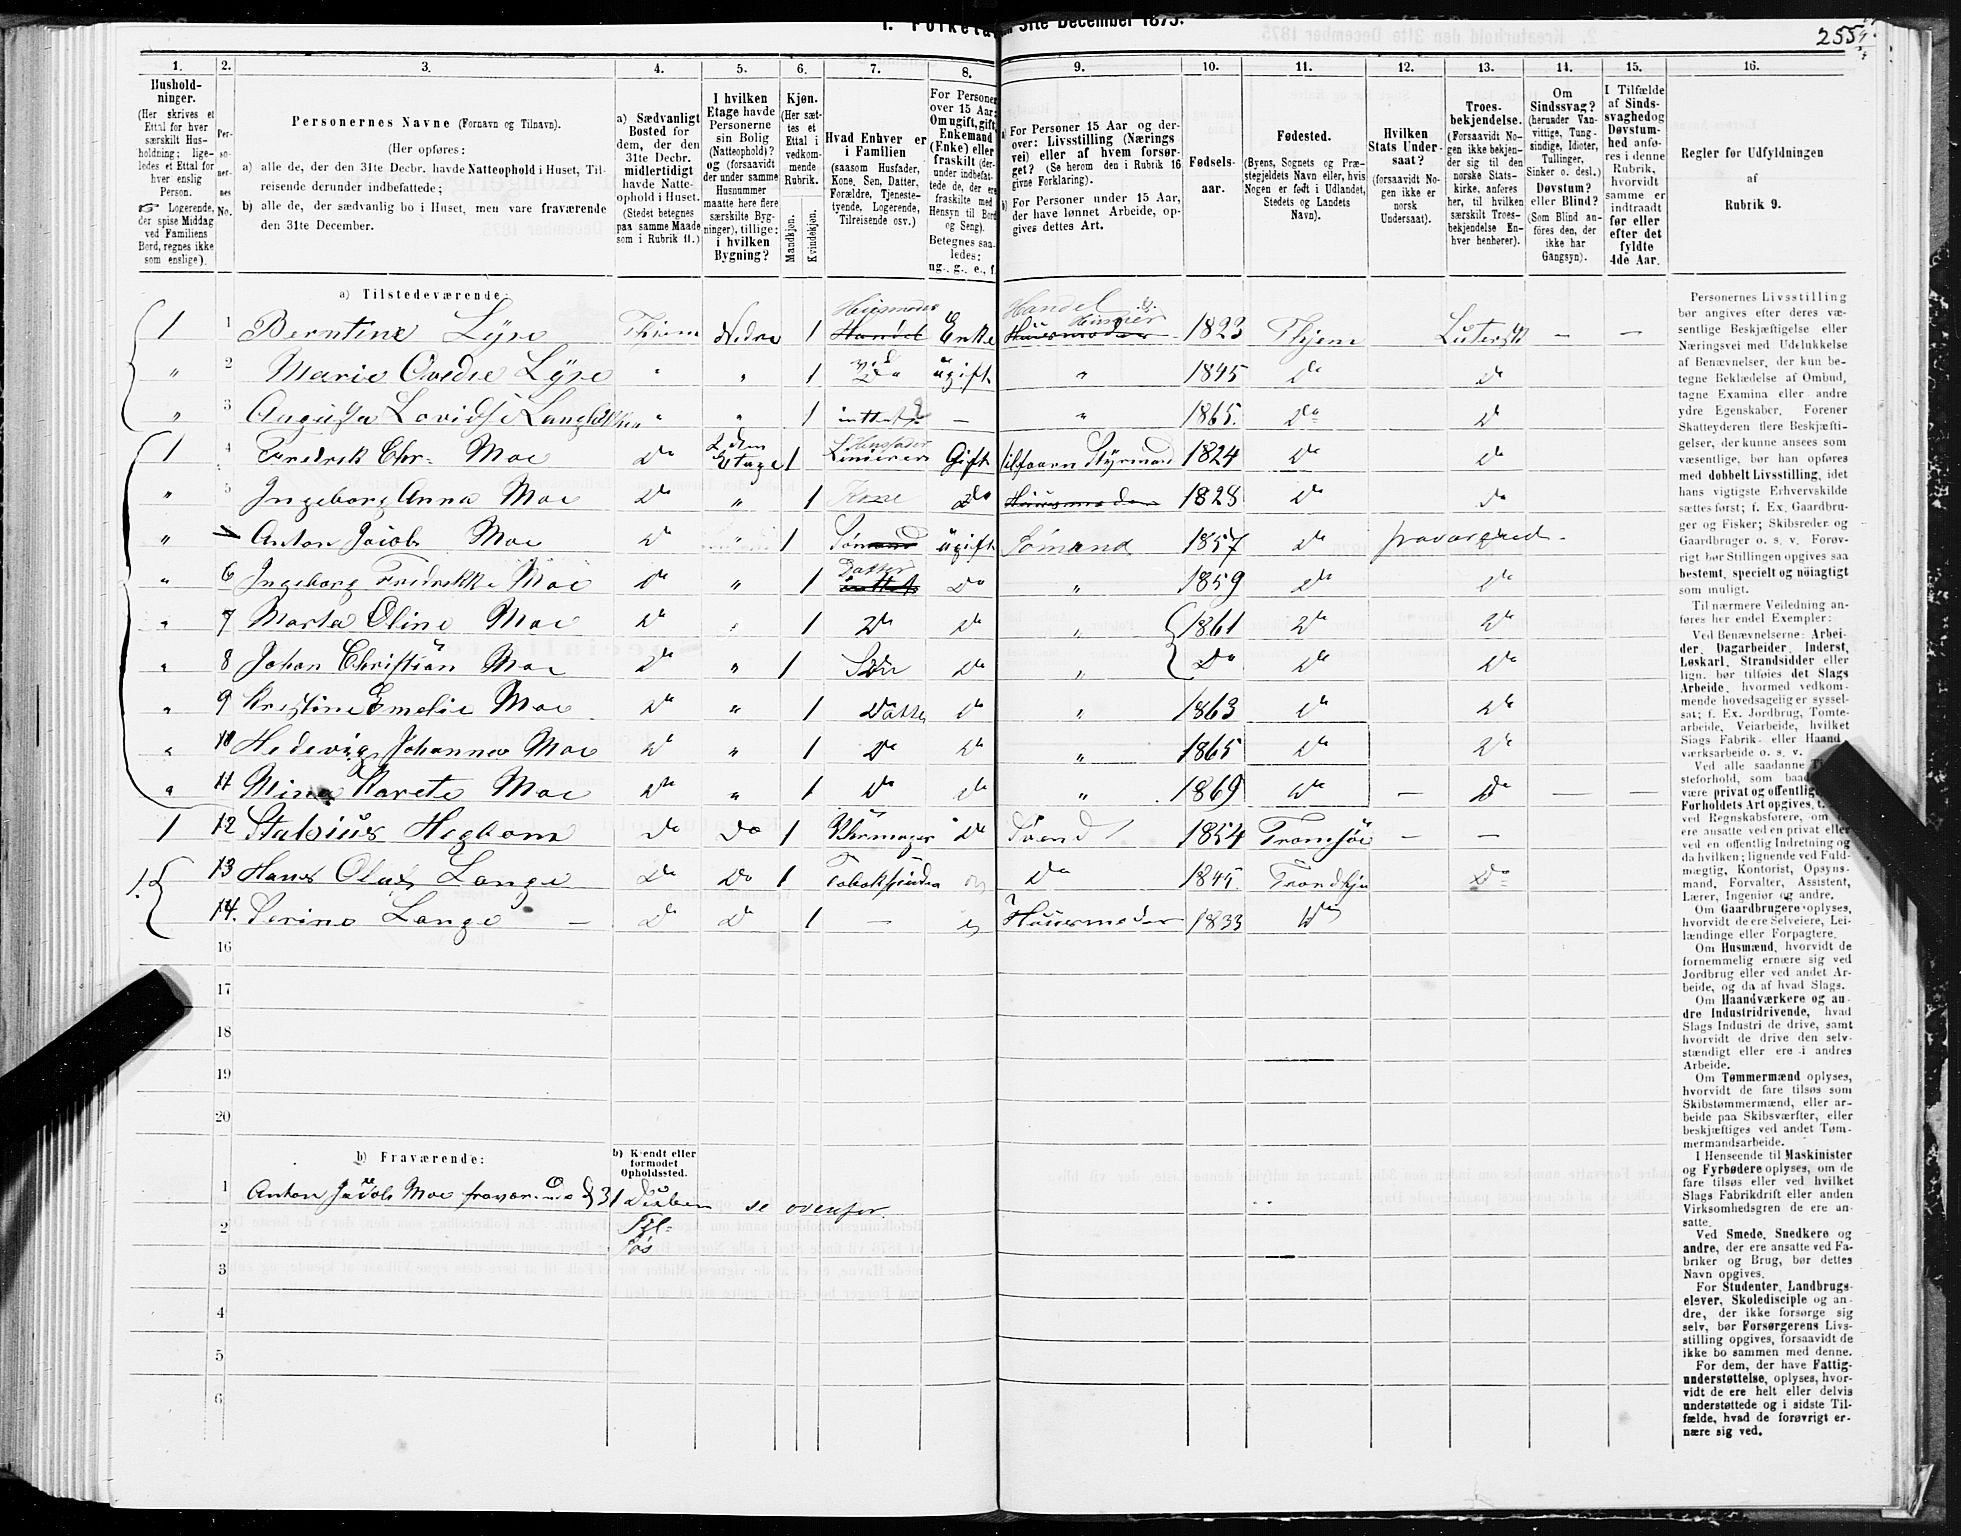 1. Folketæ 31te December 1875.
255
1. 2. 3. 4. 5. 6. 7. 8. 9. 10. 11. 12. 13. 14. 15. 16.
Hushold-
ninger.
(Her skrives et
Ettal for hver
særskilt Hus-
holdning; lige-
ledes et Ettal for
hver enslig
Person.
☞ Logerende,
der spise Middag
ved Familiens
Bord, regnes ikke
som enslige).
Per-
so-
ner-
nes
No.
Personernes Navne (Fornavn og Tilnavn).
(Her opføres:
a) alle de, der den 31te Decbr. havde Natteophold i Huset, Til-
reisende derunder indbefattede;
b) alle de, der sædvanlig bo i Huset, men vare fraværende
den 31te December.
a) Sædvanligt
Bosted for
dem, der den
31te Decbr.
midlertidigt
havde Natte-
ophold i Huset.
(Stedet betegnes
paa samme Maade
som i Rubrik 11.)
I hvilken
Etage havde
Personerne
sin Bolig
(Natteophold)?
og (forsaavidt
der under samme
Husnummer
maatte høre flere
særskilte Byg-
ninger), tillige:
i hvilken
Bygning?
Kjøn.
(Her sæt-
tes et
Ettal i
vedkom-
mende
Rubrik.
Mandkjøn.
Kvindekjøn.
Hvad Enhver er
i Familien
(saasom Husfader,
Kone, Søn, Datter,
Forældre, Tjeneste-
tyende, Logerende,
Tilreisende osv.)
For Personer
over 15 Aar:
Om ugift, gift,
Enkemand
(Enke) eller
fraskilt (der-
under indbefat-
tede de, der ere
fraskilte med
Hensyn til Bord
og Seng).
Betegnes saa-
ledes:
ug., g., e., f.
a) For Personer 15 Aar og der-
over: Livsstilling (Nærings
vei) eller af hvem forsør-
get? (Se herom den i Rubrik 16
givne Forklaring).
b) For Personer under 15 Aar,
der have lønnet Arbeide, op-
gives dettes Art.
Fødsels-
aar.
Fødested.
(Byens, Sognets og Præ-
stegjeldets Navn eller, hvis
Nogen er født i Udlandet,
Stedets og Landets
Navn).
Hvilken
Stats Under-
saat?
(forsaavidt No-
gen ikke er
norsk
Undersaat).
Troes-
bekjendelse.
(Forsaavidt No-
gen ikke bekjen-
der sig til den
norske Stats-
kirke, anføres
her, til hvilken
særskilt Troes-
bekjendelse En-
hver henhører).
Om
Sindssvag?
(herunder Van-
vittige, Tung-
sindige, Idioter,
Tullinger,
Sinker o. desl.)
Døvstum?
eller Blind?
(Som Blind an-
føres den, der
ikke har
Gangsyn).
I Tilfælde
af Sinds-
svaghed og
Døvstum-
hed anfø-
res i denne
Rubrik,
hvorvidt
samme er
indtraadt
før eller
efter det
fyldte
4de Aar.
Regler for Udfyldningen
af
Rubrik 9.
a) Tilstedeværende:
1 1 Berntine Lyse Nedre 1 Husmoder Handel Enke Handel Husmoder 1823 Lutersk — —
" 2 Marie Lyse " " 1 ugift " 1845 Do Do
" 3 " " 1 — " 1865. Do Do
1 4 Fredrik Chr. Moe Do Etage 1 Husfader Gift Styrmand 1824 Do Do
" 5 Ingeborg Anna Moe Do " 1 Kone Do Huusmoder 1828 Do Do
" Anton Jacob Moe Do " 1 Sømand ugift Sømand 1857 Do
" 6 Ingeborg Fredrikke Moe Do " 1 Datter Do " 1859 Do Do
" 7 Marta Oline Moe Do " 1 Do Do " 1861 Do Do
" 8 Johan Christian Moe Do " 1 Søn Do " Do Do Do
" 9 Kristine Emelie Moe Do " 1 Datter Do " 1863 Do Do
" 10 Hedevig Johanna Moe Do " 1 Do Do " 1865 Do Do
" 11 Mina Karete Moe Do " 1 Do Do " 1869 Do — Do — —
1 12 Do Do 1 Do Svend 1854 Tromsøe — —
1. 13 Hans Olaf Lange Do Do 1 Do 1845. Trondhj Do
14. Serine Lange — Do Do 1 — Huusmoder 1833 Do
16
17
18
19
20
b) Fraværende:
b) Kjendt eller
formodet
Opholdssted.
1 Anton Jacob Moe se ovenfor
2
3
4
5
6
Personernes Livsstilling
bør angives efter deres væ-
sentlige Beskjæftigelse eller
Næringsvei med Udelukkelse
af Benævnelser, der kun be-
tegne Beklædelse af Ombud,
tagne Examina eller andre
ydre Egenskaber. Forener
Skatteyderen flere Beskjæfti-
gelser, der kunne ansees som
væsentlige, bør han opføres
med dobbelt Livsstilling, idet
hans vigtigste Erhvervskilde
sættes først; f. Ex. Gaardbru-
ger og Fisker; Skibsreder og
Gaardbruger o. s. v. Forøv-
rigt bør Stillingen opgives saa
bestemt, specielt og nøiagtigt
som muligt.
Til nærmere Veiledning an-
føres her endel Exempler:
Ved Benævnelserne: Arbei-
der, Dagarbeider, Inderst,
Løskarl, Strandsidder eller
lign. bør tilføies det Slags
Arbeide, hvormed vedkom-
mende hovedsagelig er syssel-
sat; f. Ex. Jordbrug, Tomte-
arbeide, Veiarbeide, hvilket
Slags Fabrik- eller Haand-
værksarbeide o. s. v.
Ved alle saadanne
steforhold, som baad
være privat og offentlig
Forholdets Art opgives,
ved Regnskabsførere, om
ere ansatte ved en privat eller
ved en offentlig Indretning og
da hvilken; lignende ved Fuld-
mægtig, Kontorist, Opsyns-
mand, Forvalter, Assistent,
Lærer, Ingeniør og andre.
Om Gaardbrugere oplyses,
hvorvidt de ere Selveiere, Lei-
lændinge eller Forpagtere.
Om Husmænd, hvorvidt de
fornemmelig ernære sig ved
Jordbrug eller ved andet Ar-
beide, og da af hvad Slags.
Om Haandværkere og an-
dre Industridrivende, hvad
Slags Industri de drive, samt
hvorvidt de drive den selv-
stændigt eller ere i andres
Arbeide.
Om Tømmermænd oplyses,
hvorvidt de fare tilsøs som
Skibstømmermænd, eller ar-
beide paa Skibsværfter, eller
beskjæftiges ved andet Tøm-
mermandsarbeide.
I Henseende til Maskinister
og Fyrbødere oplyses, om de
fare tilsøs eller ved hvilket
Slags Fabrikdrift eller anden
Virksomhedsgren de ere an-
satte.
Ved Smede, Snedkere og
andre, der ere ansatte ved Fa-
briker og Brug, bør dettes
Navn opgives.
For Studenter, Landbrugs-
elever, Skoledisciple og an-
dre, der ikke forsørge sig
selv, bør Forsørgerens Livs-
stilling opgives, forsaavidt de
ikke bo sammen med denne.
For dem, der have Fattig-
understøttelse, oplyses, hvor-
vidt de ere helt eller delvis
understøttede og i sidste Til-
fælde, hvad de forøvrigt er-
nære sig ved.